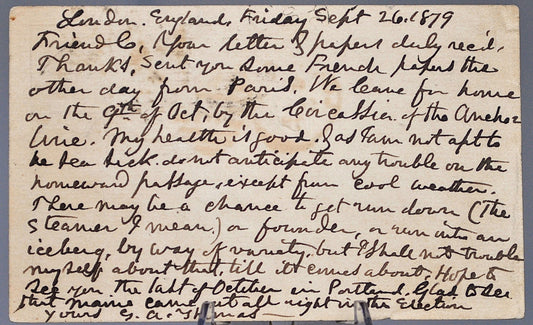 London. England, Friday Sept 26. 1879
Friend C, Your letter & papers duly rec'd.
Thanks, Sent you some French papers the
other day from Paris. We leave for home
on the 9th of Oct, by the Circassia of the Anchor
line. My health is good. & as I am not apt to
be sea sick. do not anticipate any trouble on the
homeward passage, except from cool weather.
There may be a chance to get run down (The
steamer I mean.) or founder, or run into an
iceberg, by way of variety, but I shall not trouble
myself about that, till it comes about. Hope to
see you the last of October in Portland. Glad to see
that Maine came out all right in the Election
Yours G. A. Thomas